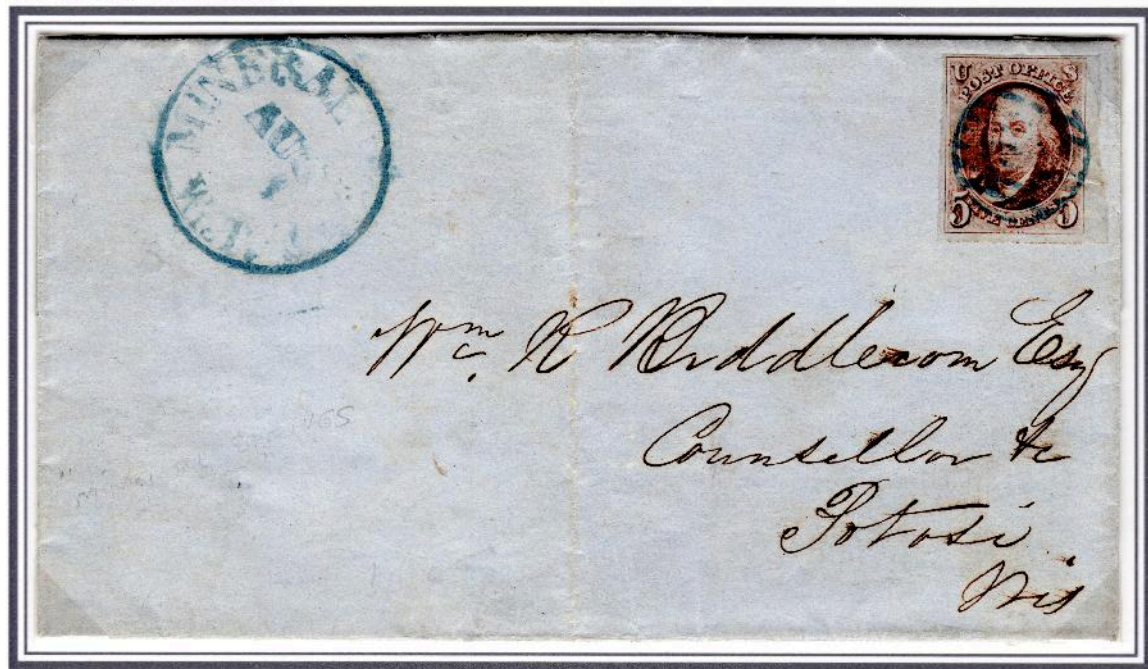 MINERAL
AUG
U S
POST OFFICE
FIVE CENTS
5 5
Wm. R Biddlecom Esq
Counsellor &c
Potosi
Wis